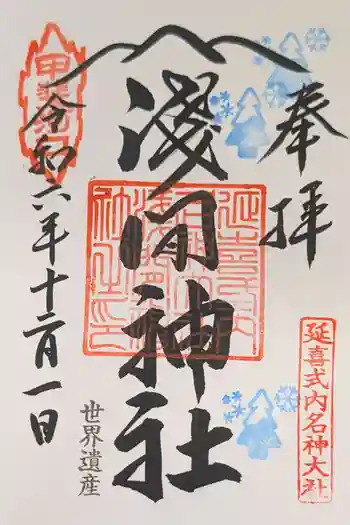 奉拝
延喜式内名神大社
淺間神社
世界遺産
令和六年十二月一日